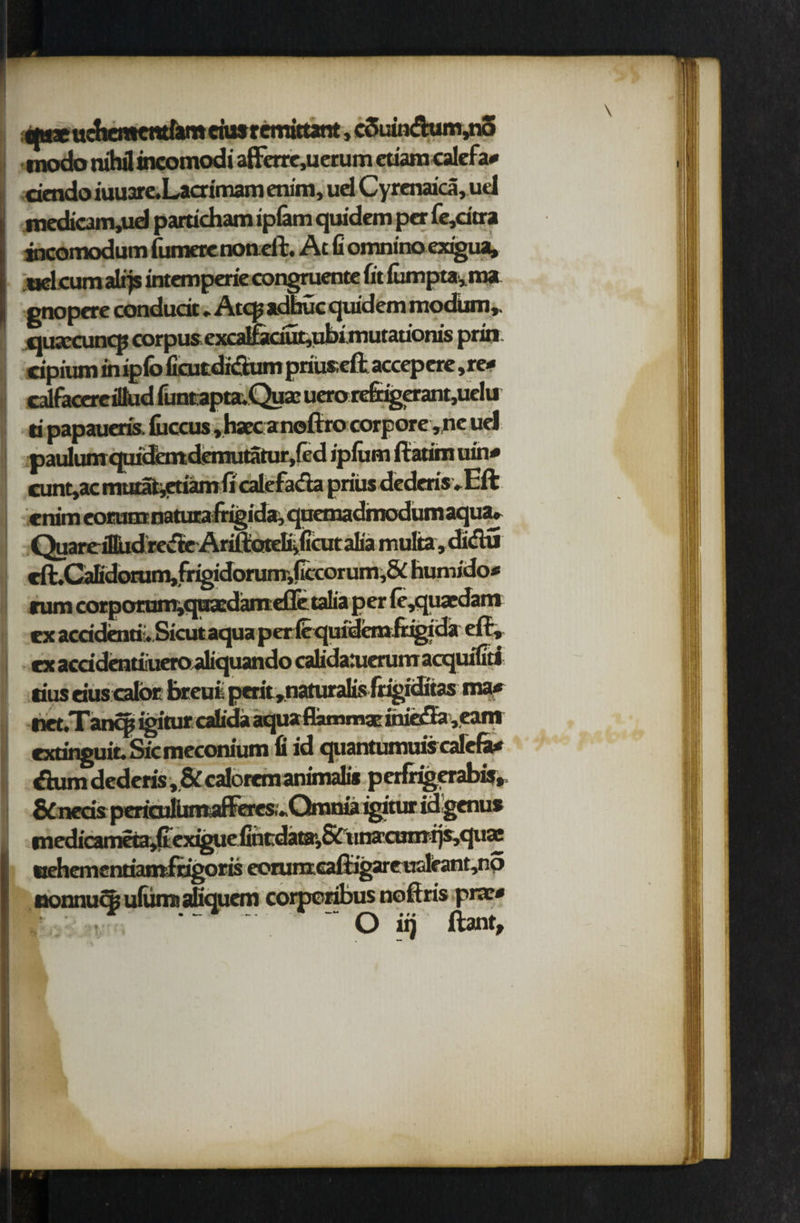 quæ uehementiam eius remittant, cõuinctum, nõ
modo nihil incomodi afferre, uerum etiam calefa⸗
ciendo iuuare. Lacrimam enim, uel Cyrenaicã, uel
medicam, uel particham ipſam quidem per ſe, citra
incomodum ſumere non eſt. At ſi omnino exigua,
uel cum alijs intemperie congruente ſit ſumpta, ma
gnopere conducit. Atqꝫ adhuc quidem modum,
quæcunqꝫ corpus excalfaciũt, ubi mutationis prin
cipium in ipſo ſicut dictum prius eſt accepere, re⸗
calfacere illud ſunt apta. Quæ uero refrigerant, uelu
ti papaueris ſuccus, hæc a noſtro corpore, ne uel
paulum quidem demutãtur, ſed ipſum ſtatim uin⸗
cunt, ac mutãt, etiam ſi calefacta prius dederis. Eſt
enim eorum natura frigida, quemadmodum aqua.
Quare illud recte Ariſtoteli, ſicut alia multa, dictũ
eſt. Calidorum, frigidorum, ſiccorum, & humido⸗
rum corporum, quædam eſſe talia per ſe, quædam
ex accidenti. Sicut aqua per ſe quidem frigida eſt,
ex accidenti uero aliquando calida: uerum acquiſiti
tius eius calor breui perit, naturalis frigiditas ma⸗
net. Tanqꝫ igitur calida aqua flammæ iniecta, eam
extinguit. Sic meconium ſi id quantumuis calefa⸗
ctum dederis, & calorem animalis perfrigerabis,
& necis periculum afferes. Omnia igitur id genus
medicamẽta, ſi exigue ſint data, & una cum ijs, quæ
uehementiam frigoris eorum caſtigare ualeant, nõ
nonnuqꝫ uſum aliquem corporibus noſtris præ⸗
O iij ſtant,